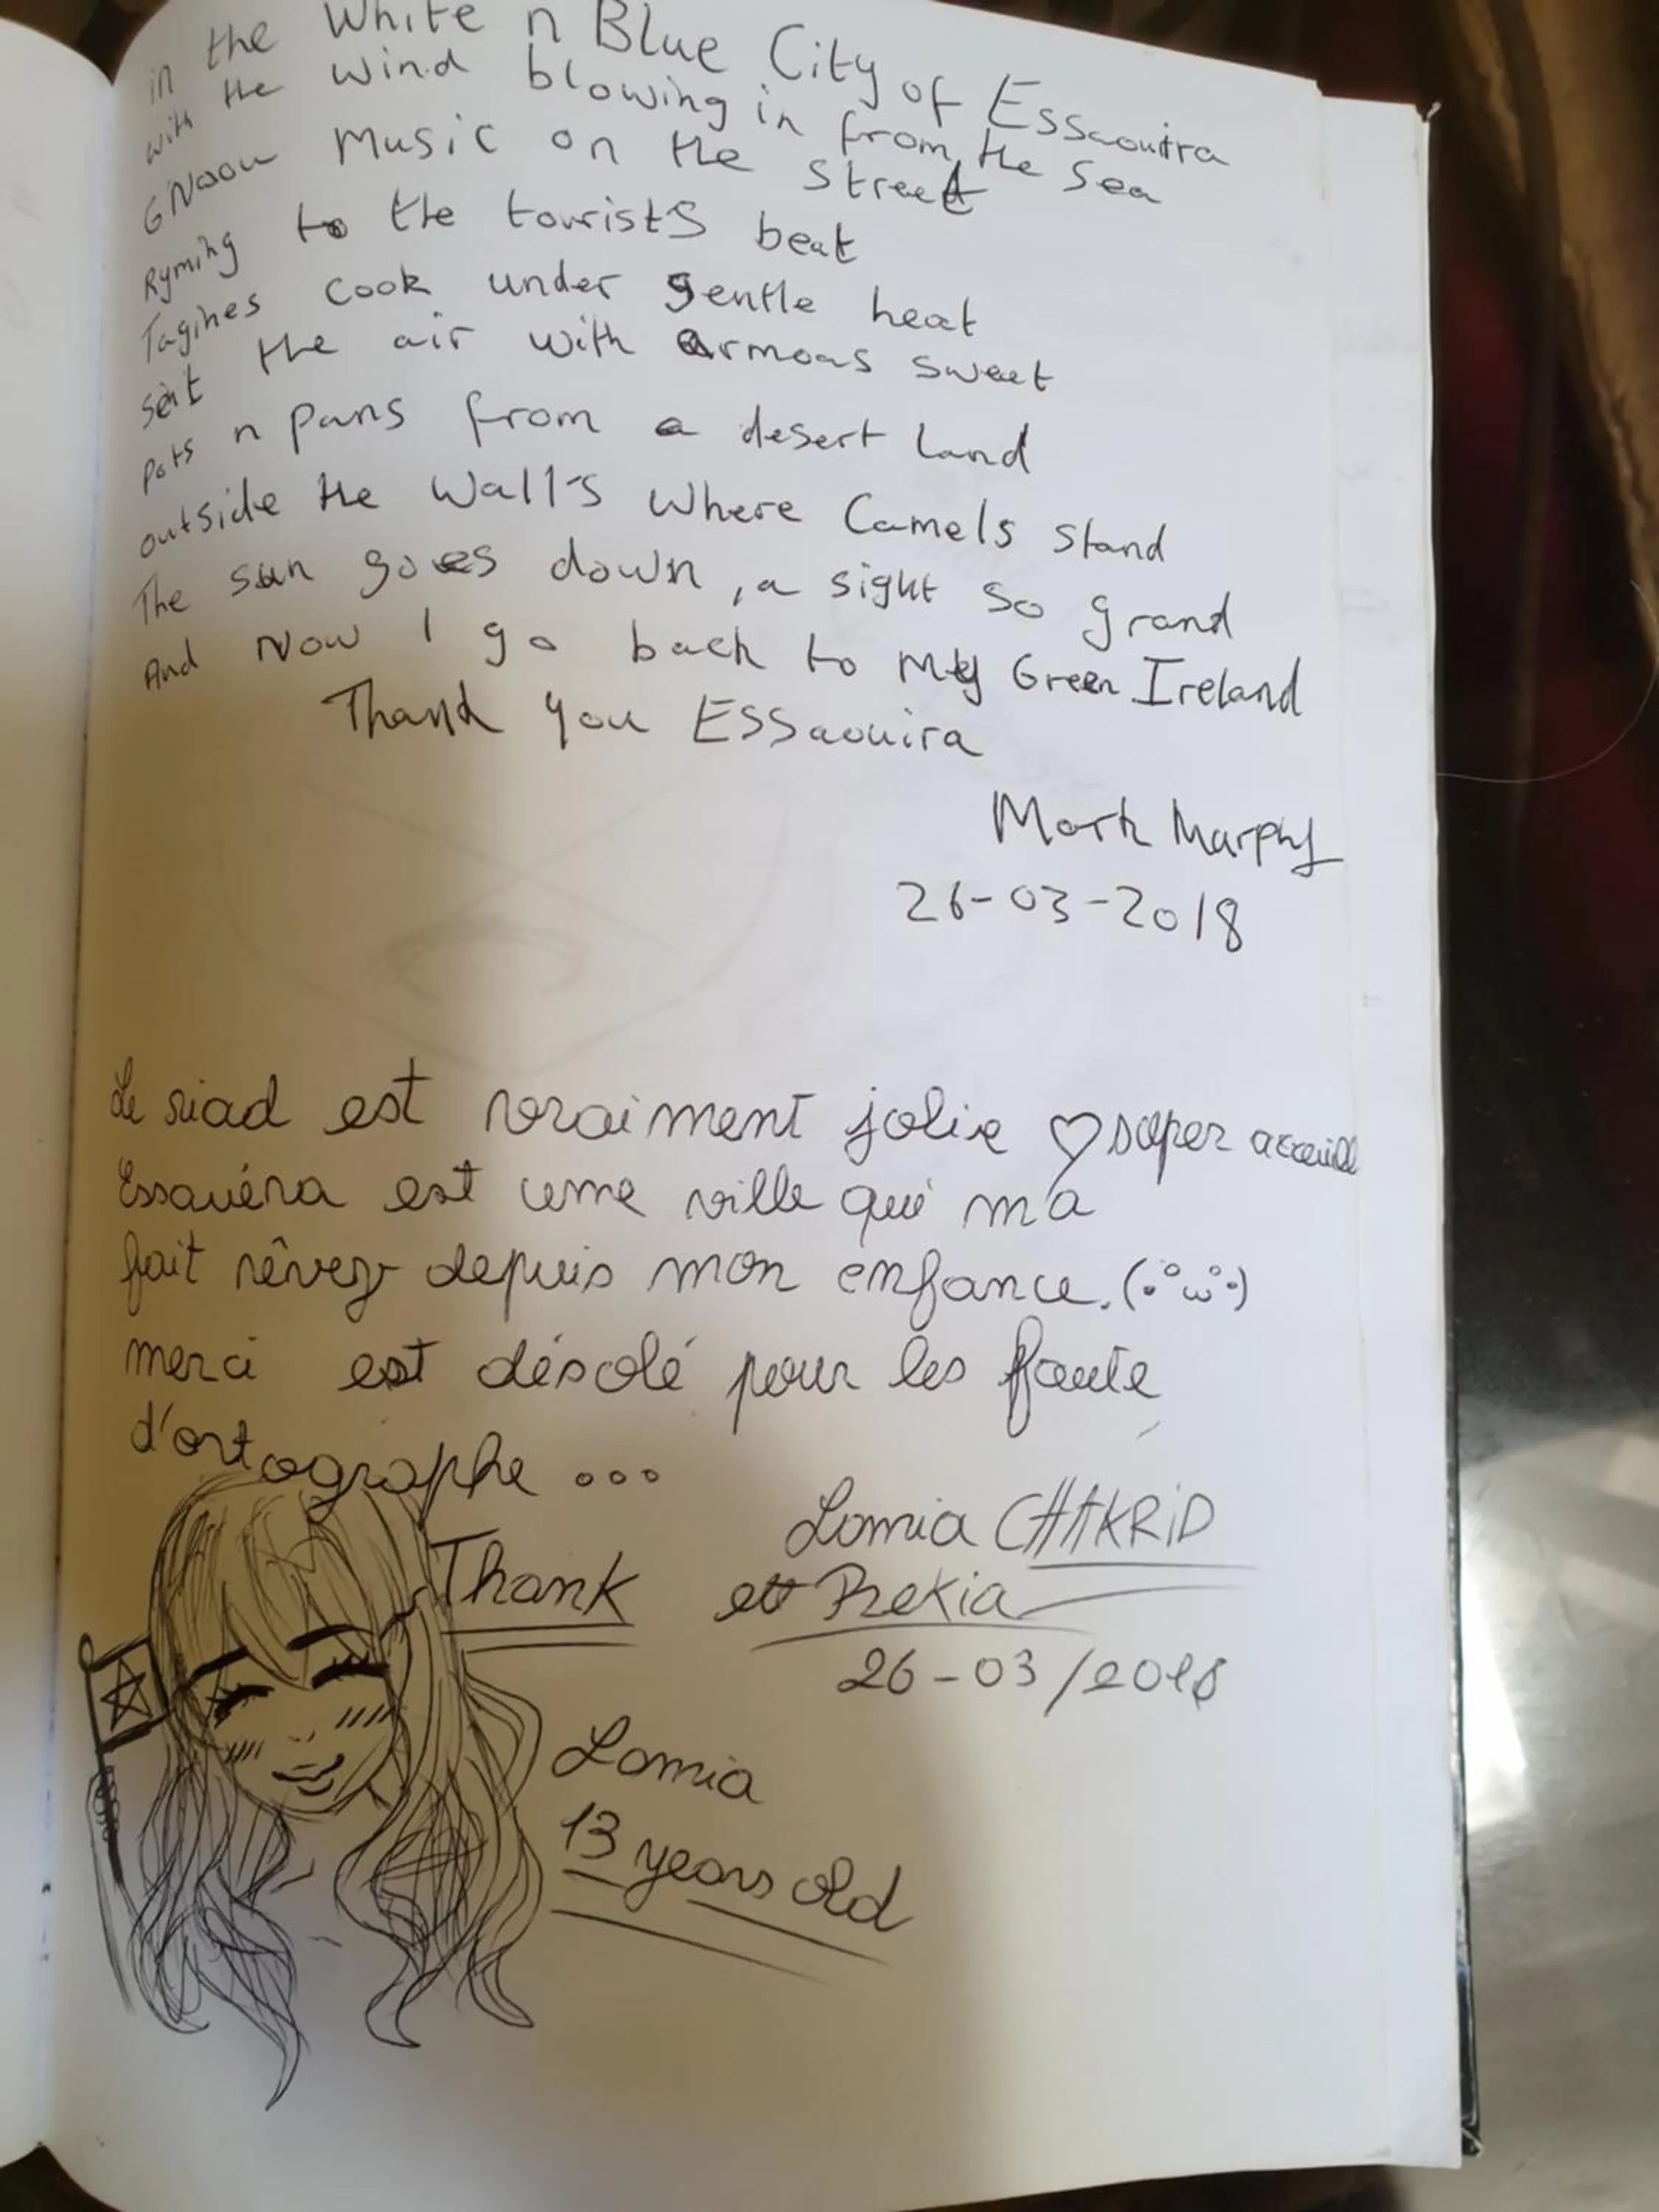 in the White n Blue City of Essaouira
with the wind blowing in from the Sea
GNaou Music on the street
Ryming to the tourists beat
Tagines cook under gentle heat
the air with armoas sweet
pots n pans from a desert land
outside the Walls where Camels stand
The sun goes down, a sight so grand
And Now I go back to my Green Ireland
Thank you ESSaouira
Mark Murphy
26-03-2018
Le riad est vraiment jolie ♡ super acceuill
Essauéra est une ville qui m'a
fait rêver depuis mon enfance.
merci est désolé pour les faute
d'ortographe ...
Thank
Lamia CHAKRiD
et Rekia
26-03/2018
Lamia
13 years old